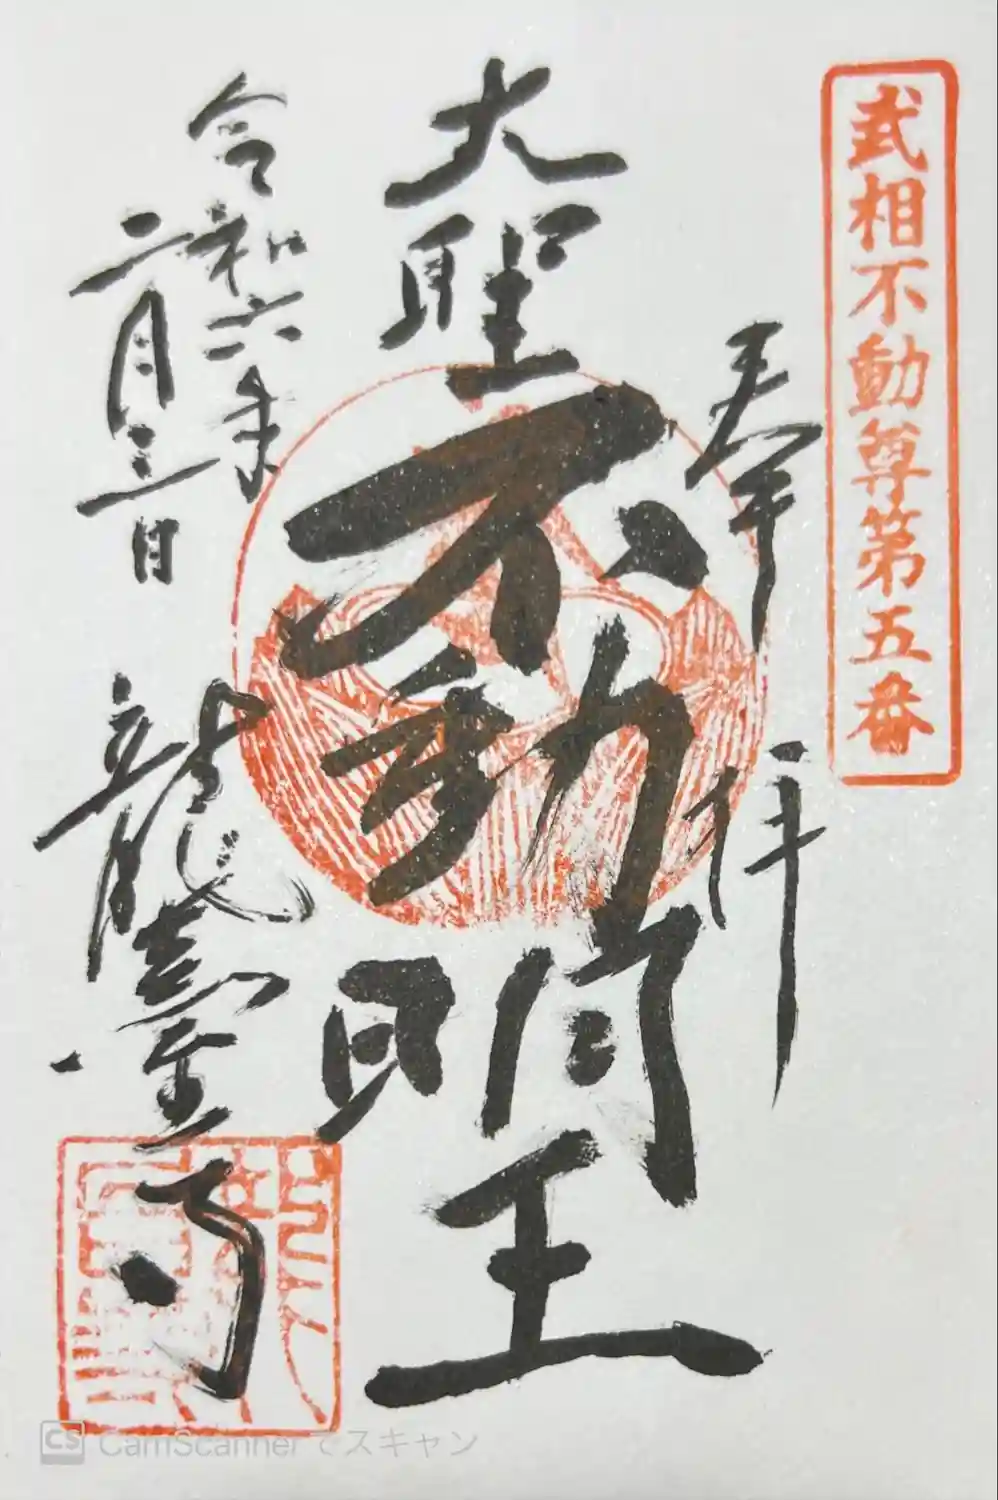 武相不動尊第五番
奉拝
大聖不動明王
令和六年
二月三日
龍臺寺
CamScannerでスキャン